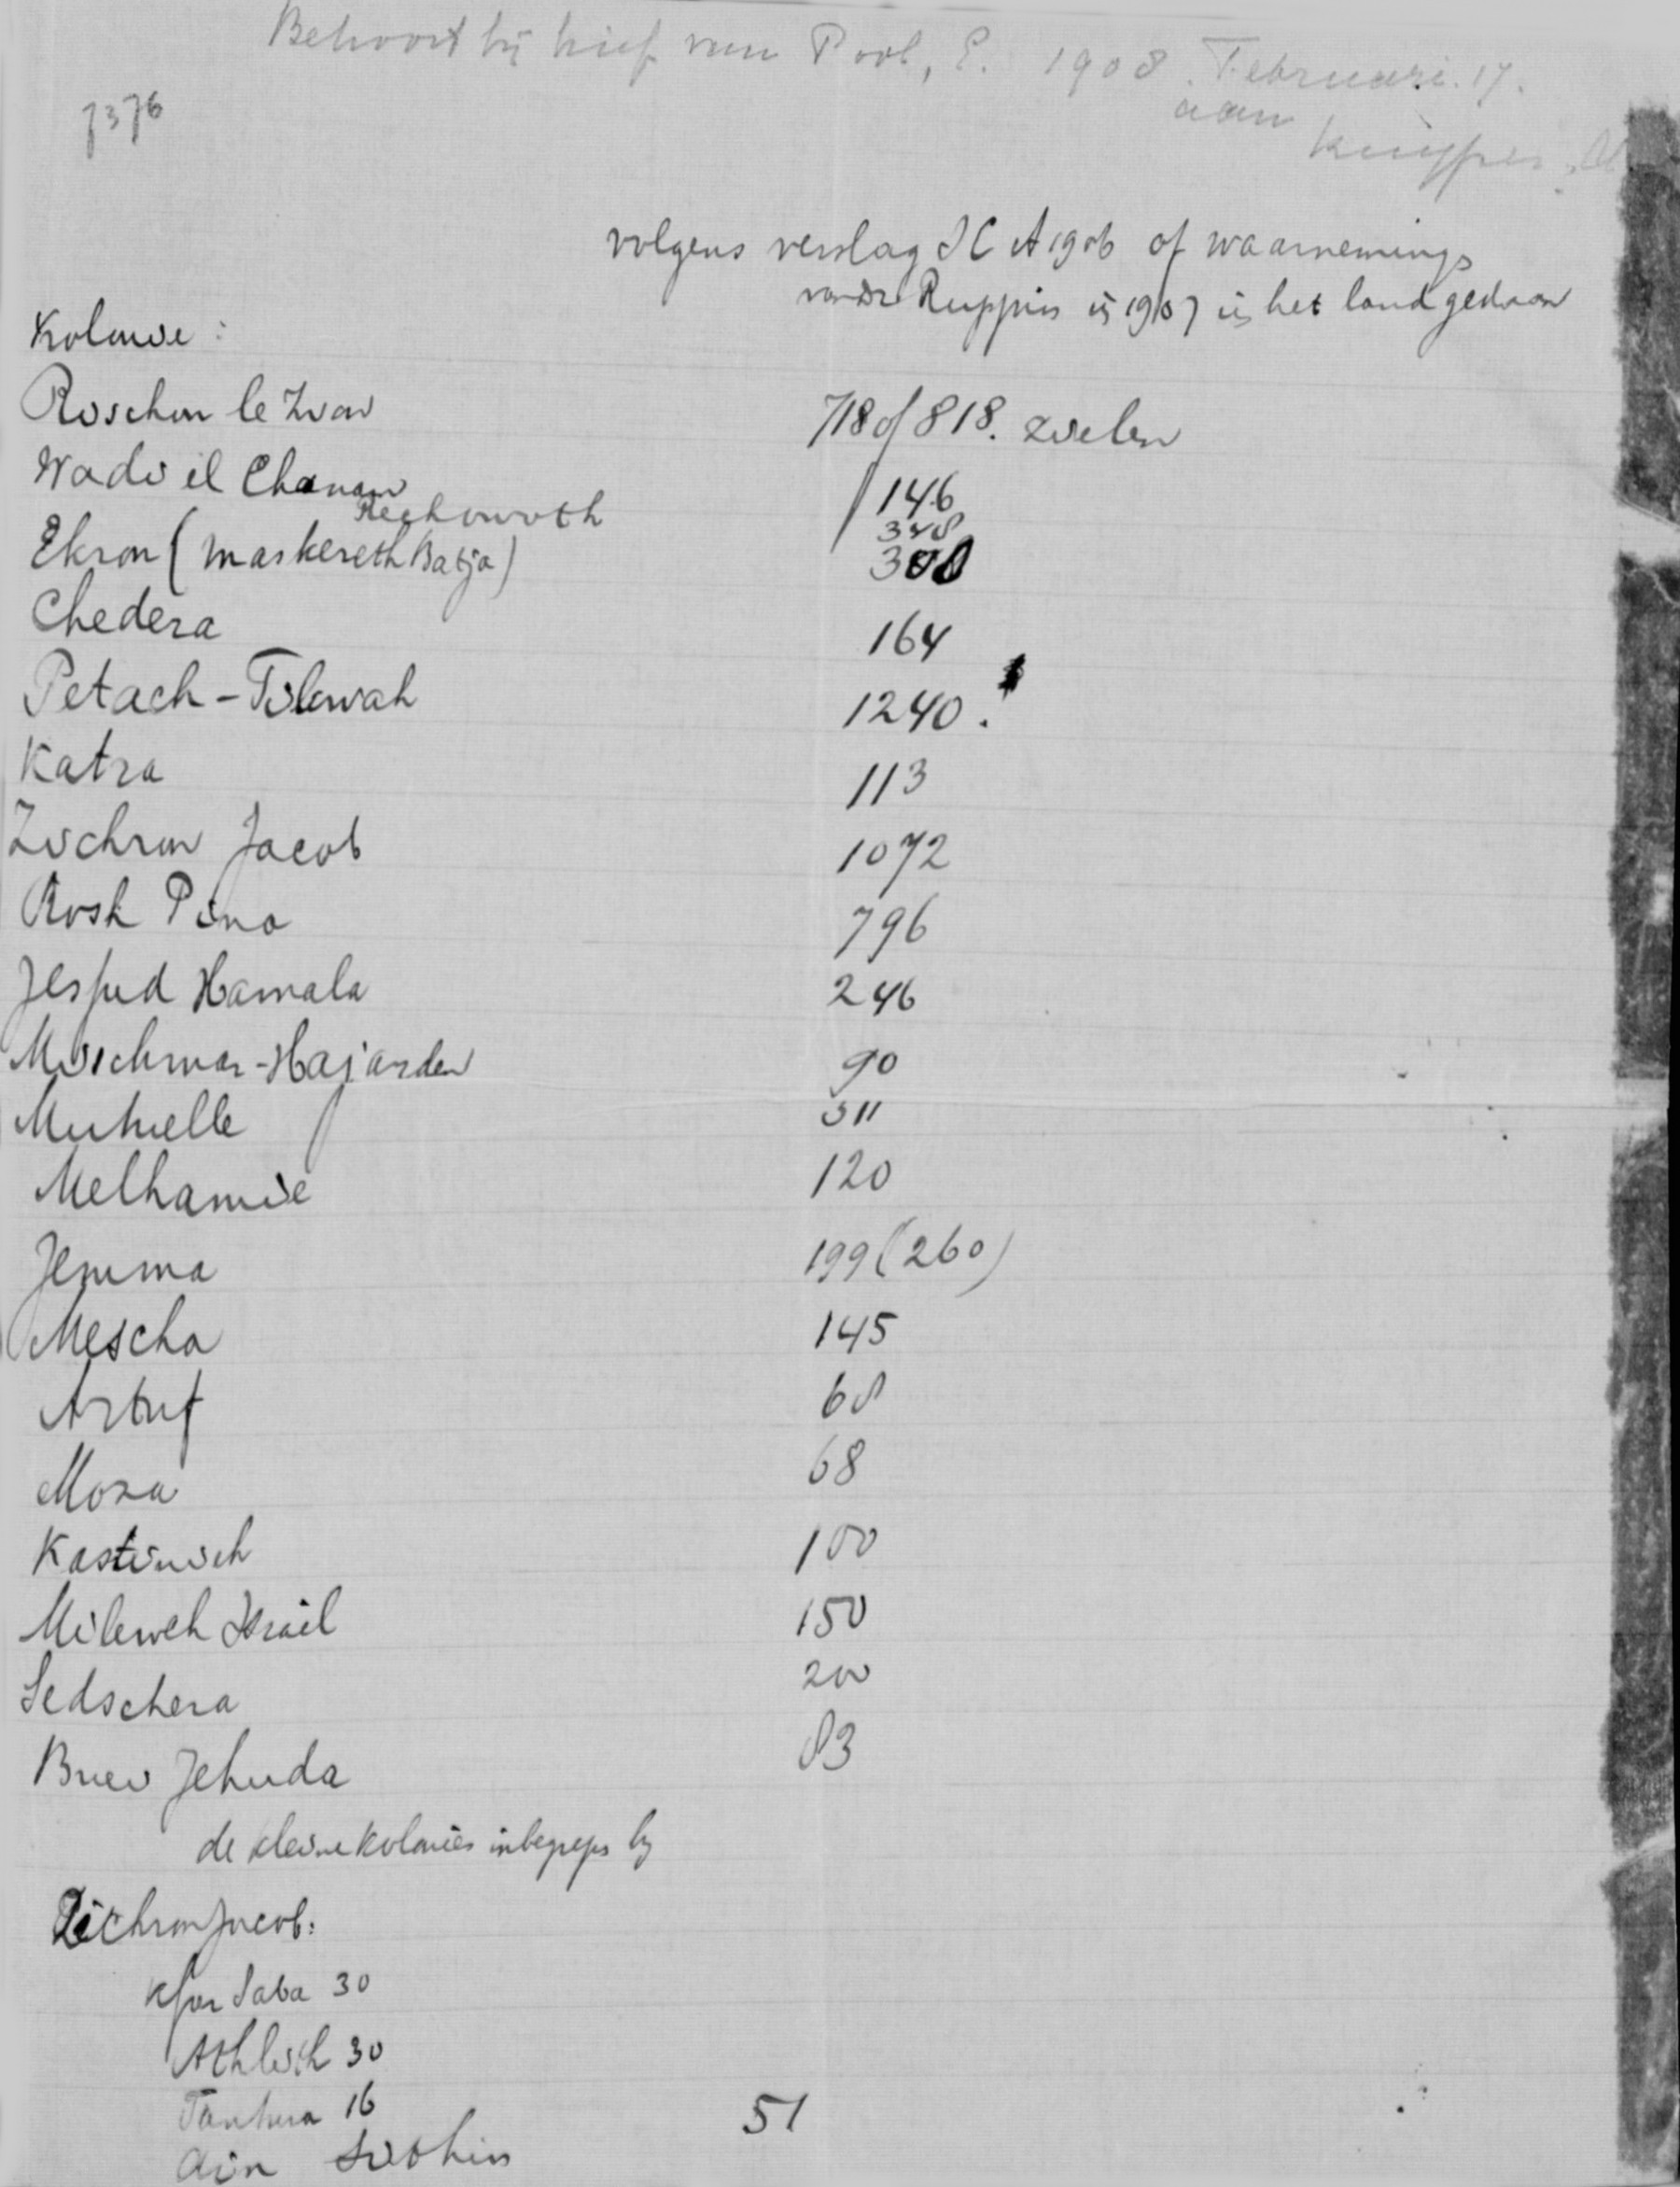 Behoort bij brief van Pool, E. 1908. Februari. 17.
aan
Kuijper, A
7376
volgens verslag ICA 1906 of waarnemings
van Dr Ruppin in 1907 in het land gedaan
Kolonie:
Rischon le Zion 718 of 818. zielen
Wadi il Chanan 146
Rechowoth 348
Ekron (Maskereth Batja) 300
Chedera 164
Petach-Tikwah 1240.
Katra 113
Zichron Jacob 1072
Rosh Pina 796
Jessud Hamala 246
Mischmar-Hajarden 90
Mutuelle 311
Melhamie 120
Jemma 199 (260)
Mescha 145
Artuf 68
Moza 68
Kastinieh 100
Mikweh Israël 150
Sedschera 200
Bnei Jehuda 83
de kleine kolonies inbegrepen by
Zichron Jacob:
Kfar Saba 30
Athlith 30
Tantura 16
Ain 51